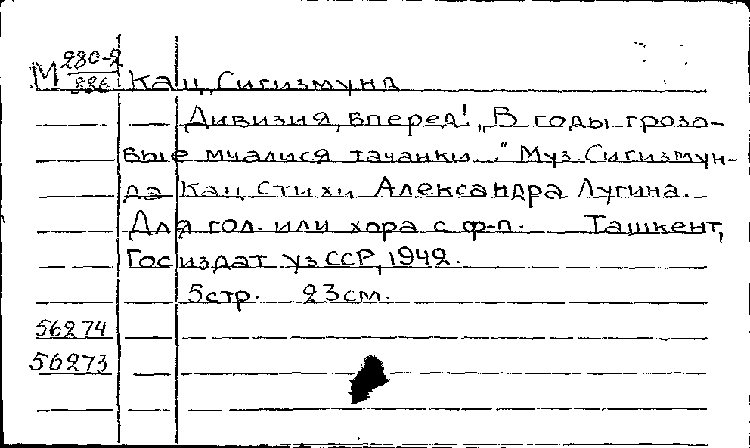 М 280-2
226 Кац, Сигизмунд
Дивизия, вперед! „В годы грозо-
вые мчалися тачанки..." Муз. Сигизмун-
да Кац. Стихи Александра Лугина.
Для гол. или хора с ф-п. Ташкент,
Госиздат УзССР, 1942.
5 стр. 23 см.
56274
56273